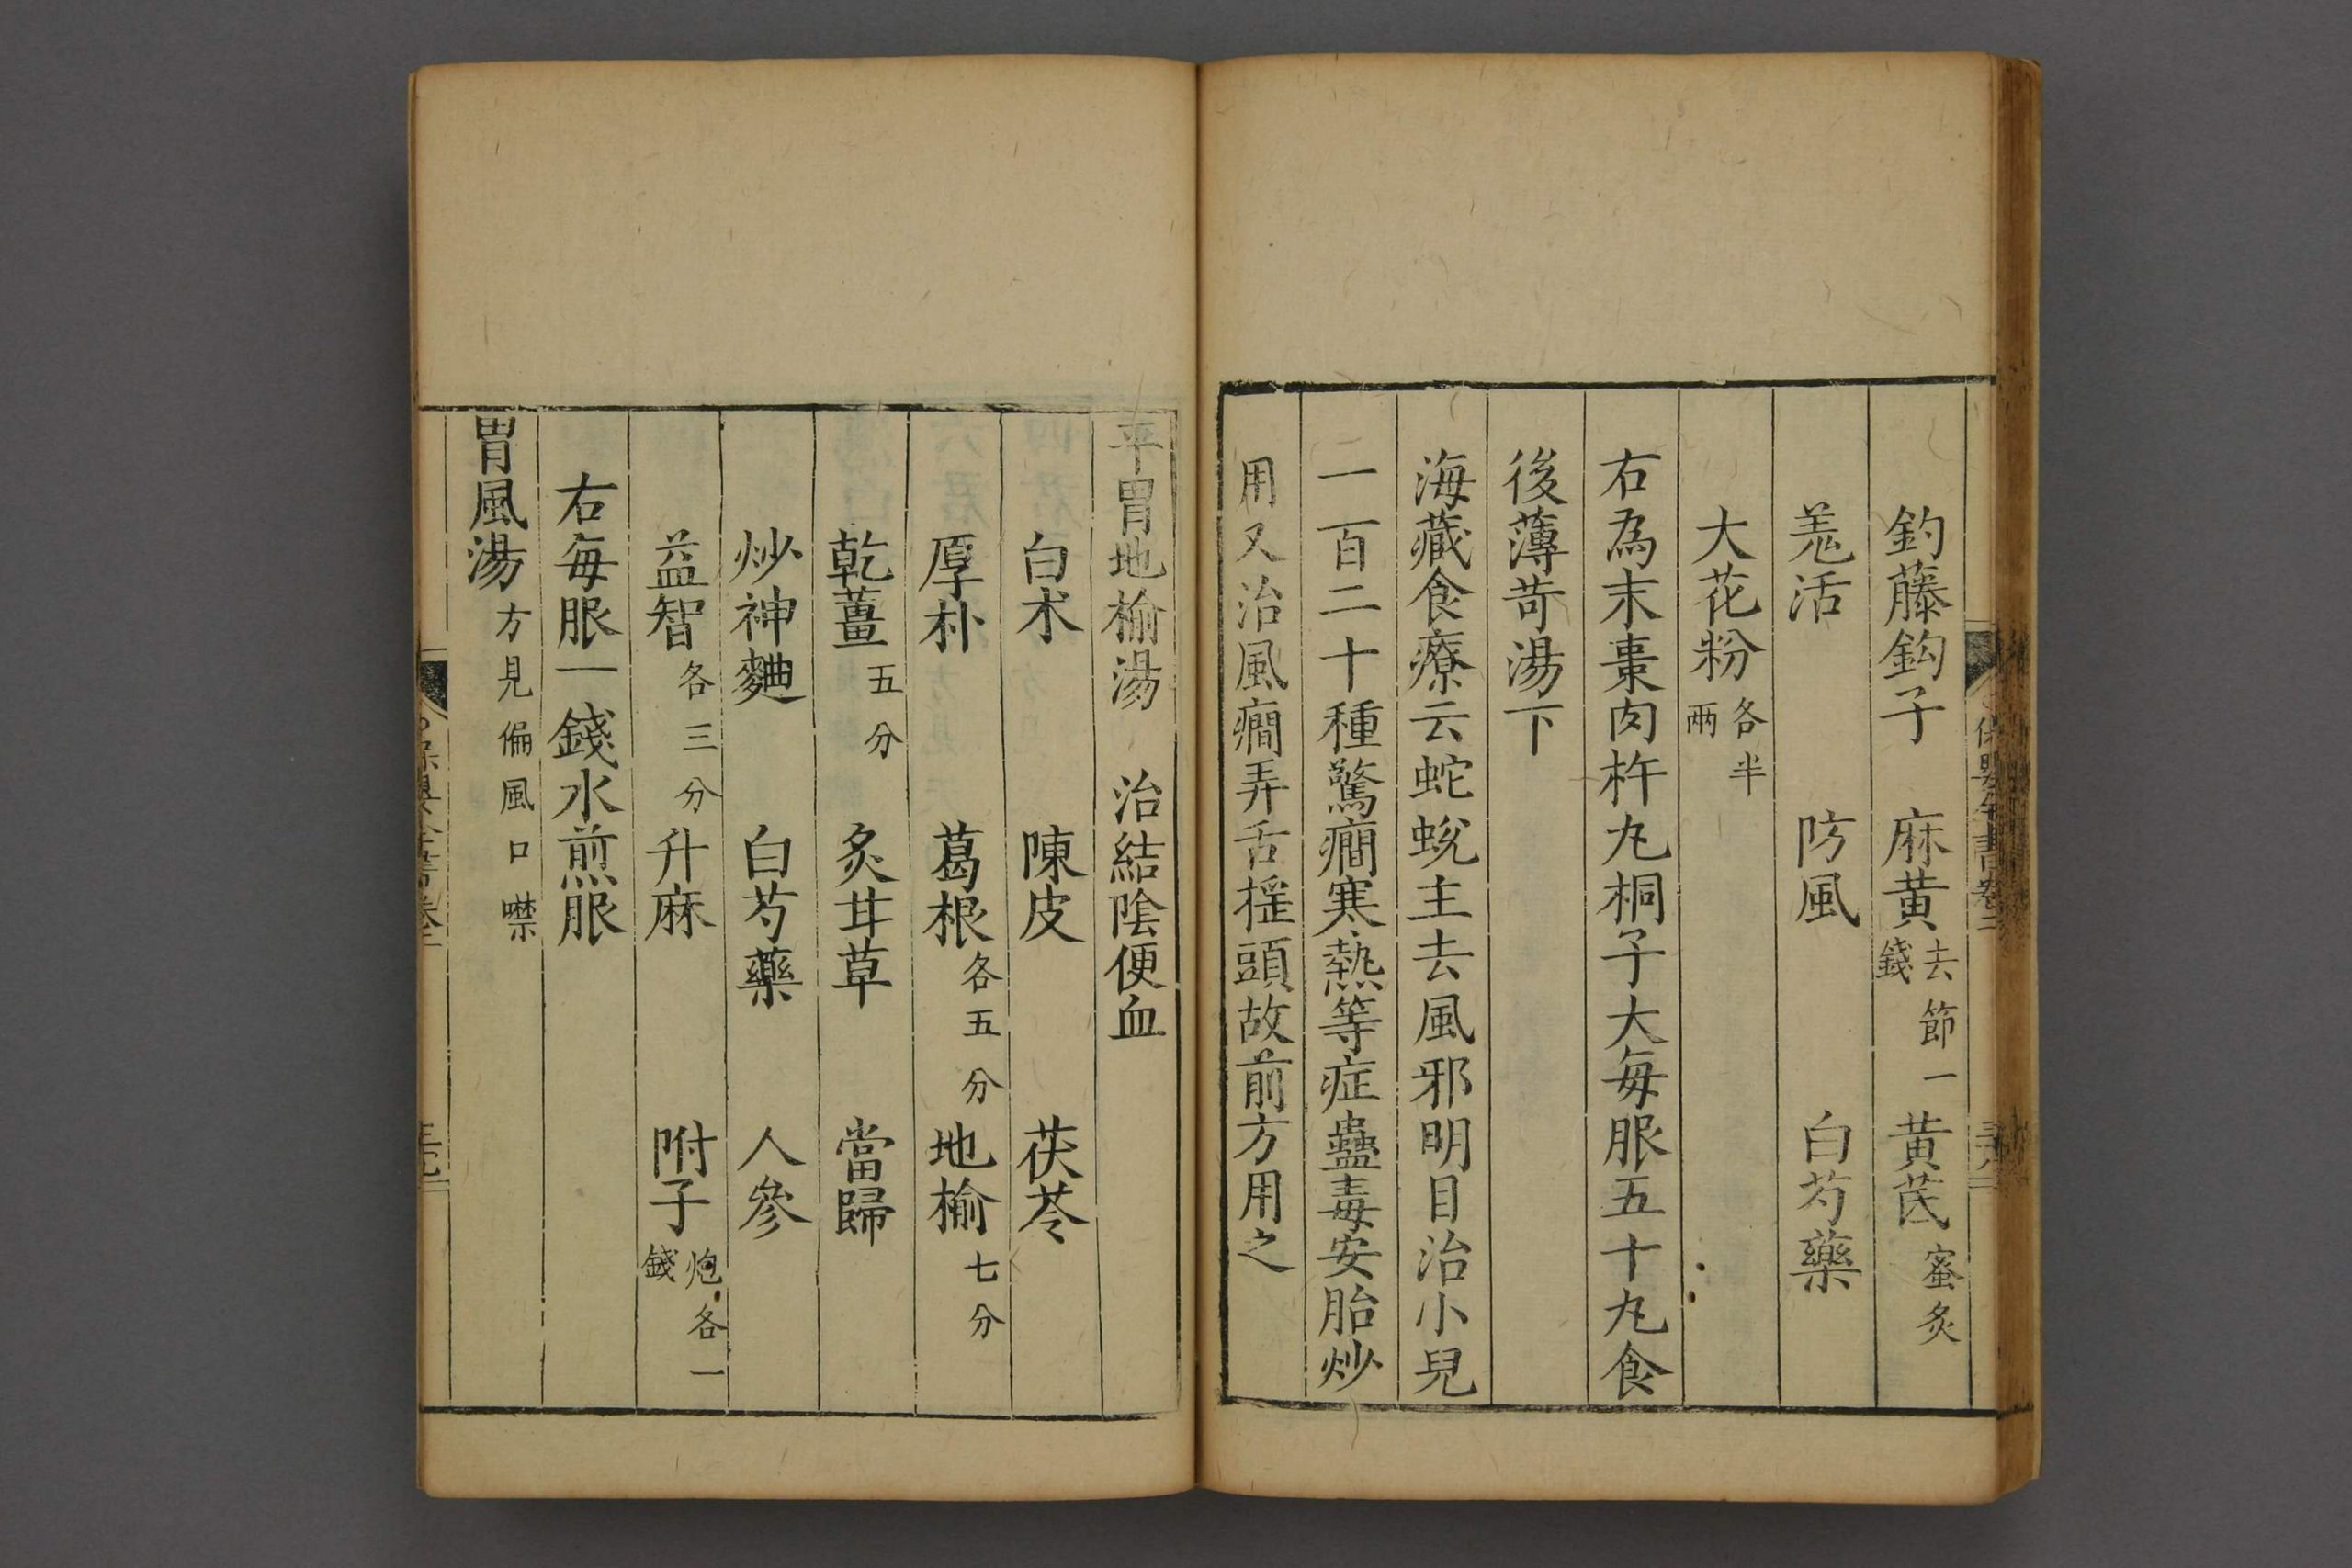 釣藤鈎子　麻黄去節一錢　黄芪蜜炙
羗活　防風　白芍藥
大花粉各半两
右為末棗肉杵丸桐子大每服五十丸食
後薄苛湯下
海藏食療云蛇蛻主去風邪明目治小兒
一百二十種驚癎寒熱等症蠱毒安胎炒
用又治風癎弄舌搖頭故前方用之
平胃地榆湯　治結陰便血
白术　陳皮　茯苓
厚朴　葛根各五分　地榆七分
乾薑五分　炙甘草　當歸
炒神麯　白芍藥　人參
益智各三分　升麻　附子炮各一錢
右每服一錢水煎服
胃風湯方見偏風口噤